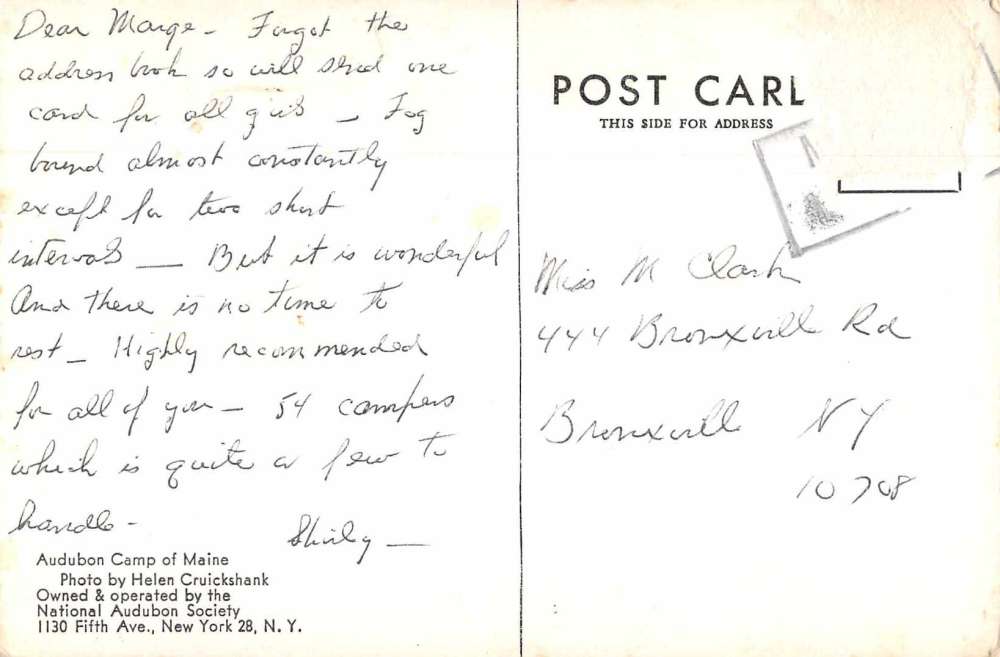 Dear Marge - Forgot the
address book so will send one
card for all girls - Fog
bound almost constantly
except for two short
intervals — But it is wonderful
And there is no time to
rest - Highly recommended
for all of you - 54 campers
which is quite a few to
handle -
Shirley —
Audubon Camp of Maine
Photo by Helen Cruickshank
Owned & operated by the
National Audubon Society
1130 Fifth Ave., New York 28, N. Y.
POST CARL
THIS SIDE FOR ADDRESS
Miss M Clark
444 Bronxvill Rd
Bronxvill NY
10708